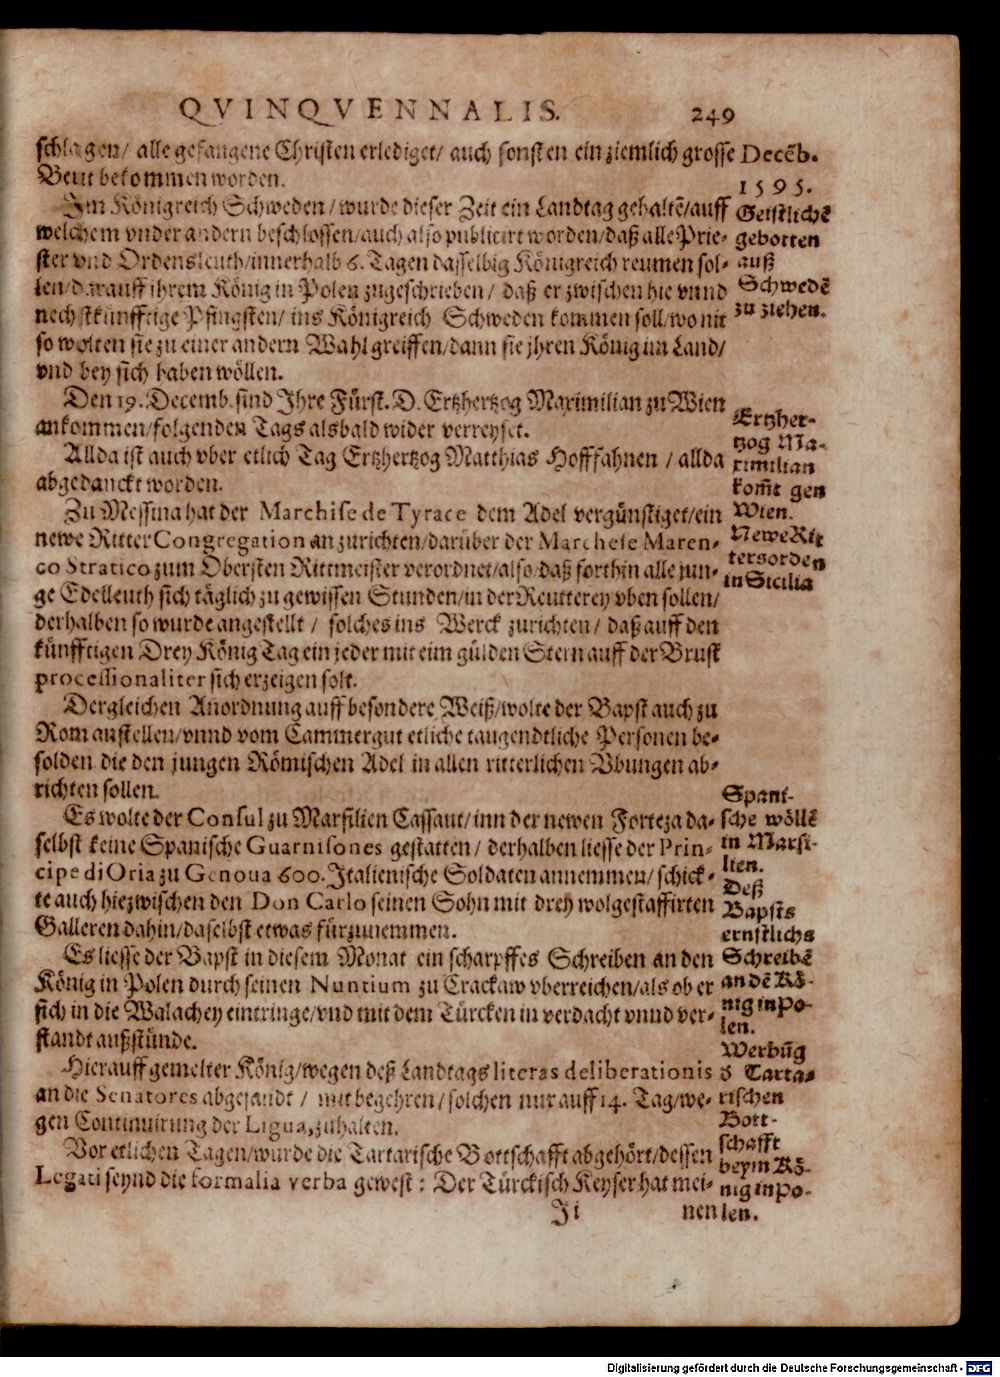 QVINQVENNALIS. 249
schlagen/ alle gefangene Christen erlediget/ auch sonsten ein ziemlich grosse
Beut bekommen worden.
Im Königreich Schweden/ wurde dieser Zeit ein Landtag gehaltē/ auff
welchem vnder andern beschlossen/ auch also publicirt worden/ daß alle Prie-
ster vnd Ordensleuth/ innerhalb 6. Tagen dasselbig Königreich reumen sol-
len/ darauff ihrem König in Polen zugeschrieben/ daß er zwischen hie vnnd
nechstkünfftige Pfingsten/ ins Königreich Schweden kommen soll/ wo nit
so wolten sie zu einer andern Wahl greiffen/ dann sie jhren König im Land/
vnd bey sich haben wöllen.
Den 19. Decemb. sind Ihre Fürst. D. Ertzhertzog Maximilian zu Wien
ankommen/ folgenden Tags alsbald wider verreyset.
Allda ist auch vber etlich Tag Ertzhertzog Matthias Hofffahnen/ allda
abgedanckt worden.
Zu Messina hat der Marchise de Tyrace dem Adel vergünstiget/ ein
newe Ritter Congregation anzurichten/ darüber der Marchese Maren-
co Stratico zum Obersten Rittmeister verordnet/ also/ daß forthin alle jun-
ge Edelleuth sich täglich zu gewissen Stunden/ in der Reutterey vben sollen/
derhalben so wurde angestellt/ solches ins Werck zurichten/ daß auff den
künfftigen Drey König Tag ein jeder mit eim gülden Stern auff der Brust
processionaliter sich erzeigen solt.
Dergleichen Anordnung auff besondere Weiß/ wolte der Bapst auch zu
Rom anstellen/ vnnd vom Cammergut etliche taugendtliche Personen be-
solden die den jungen Römischen Adel in allen ritterlichen Vbungen ab-
richten sollen.
Es wolte der Consul zu Marsilien Cassaut/ inn der newen Forteza da-
selbst keine Spanische Guarnisones gestatten/ derhalben liesse der Prin-
cipe di Oria zu Genoua 600. Italienische Soldaten annemmen/ schick-
te auch hiezwischen den Don Carlo seinen Sohn mit drey wolgestaffirten
Galleren dahin/ daselbst etwas fürzunemmen.
Es liesse der Bapst in diesem Monat ein scharpffes Schreiben an den
König in Polen durch seinen Nuntium zu Crackaw vberreichen/ als ob er
sich in die Walachey eintringe/ vnd mit dem Türcken in verdacht vnnd ver-
standt außstünde.
Hierauff gemelter König/ wegen deß Landtags literas deliberationis
an die Senatores abgesandt/ mit begehren/ solchen nur auff 14. Tag/ we-
gen Continuirung der Ligua, zuhalten.
Vor etlichen Tagen/ wurde die Tartarische Bottschafft abgehört/ dessen
Legati seynd die formalia verba gewest: Der Türckisch Keyser hat mei-
Ii nen
Decēb.
1595.
Geistlichē
gebotten
auß
Schwedē
zu ziehen.
Ertzher-
tzog Ma-
ximilian
kom̄t gen
Wien.
Newe Rit
tersorden
in Sicilia
Spani-
sche wöllē
in Marsi-
lien.
Deß
Bapsts
ernstlichs
Schreibē
an dē Kö-
nig in Po-
len.
Werbūg
d Tarta-
rischen
Bott-
schafft
beym Kö-
nig in Po-
len.
Digitalisierung gefördert durch die Deutsche Forschungsgemeinschaft - DFG